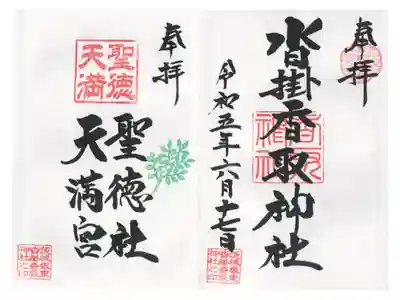 奉拝
沓掛香取神社
令和五年六月十七日
奉拝
聖徳
天満
聖徳社
天満宮